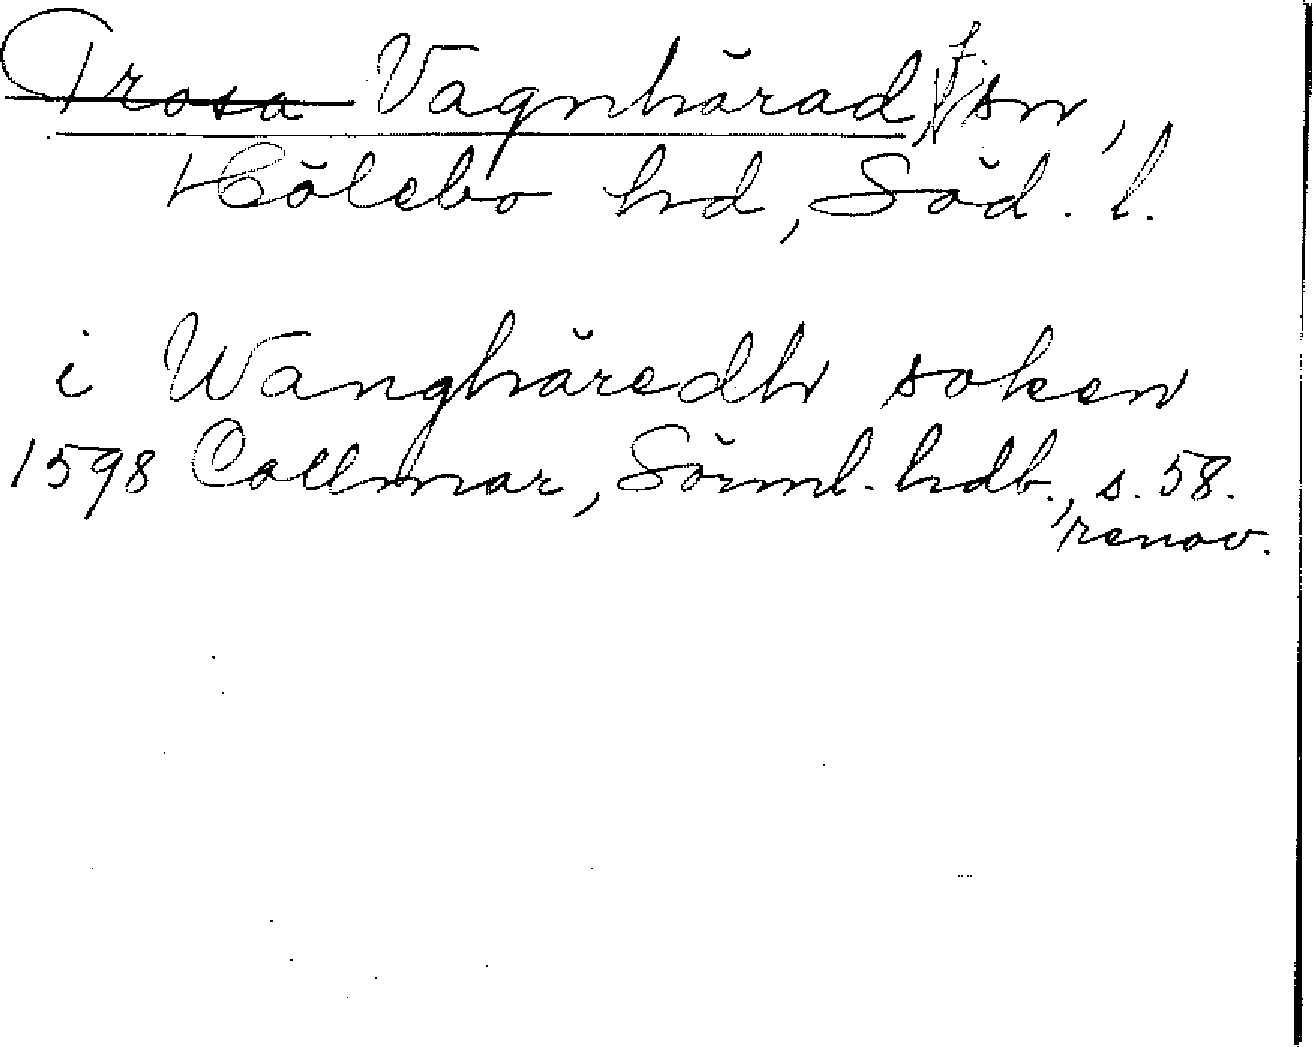 Trosa Vagnhärad sn,
Hölebo hd, Söd. l.
i Wanghäredh soken
1598 Collmar, Sörml. hdb., s. 58.
renov.